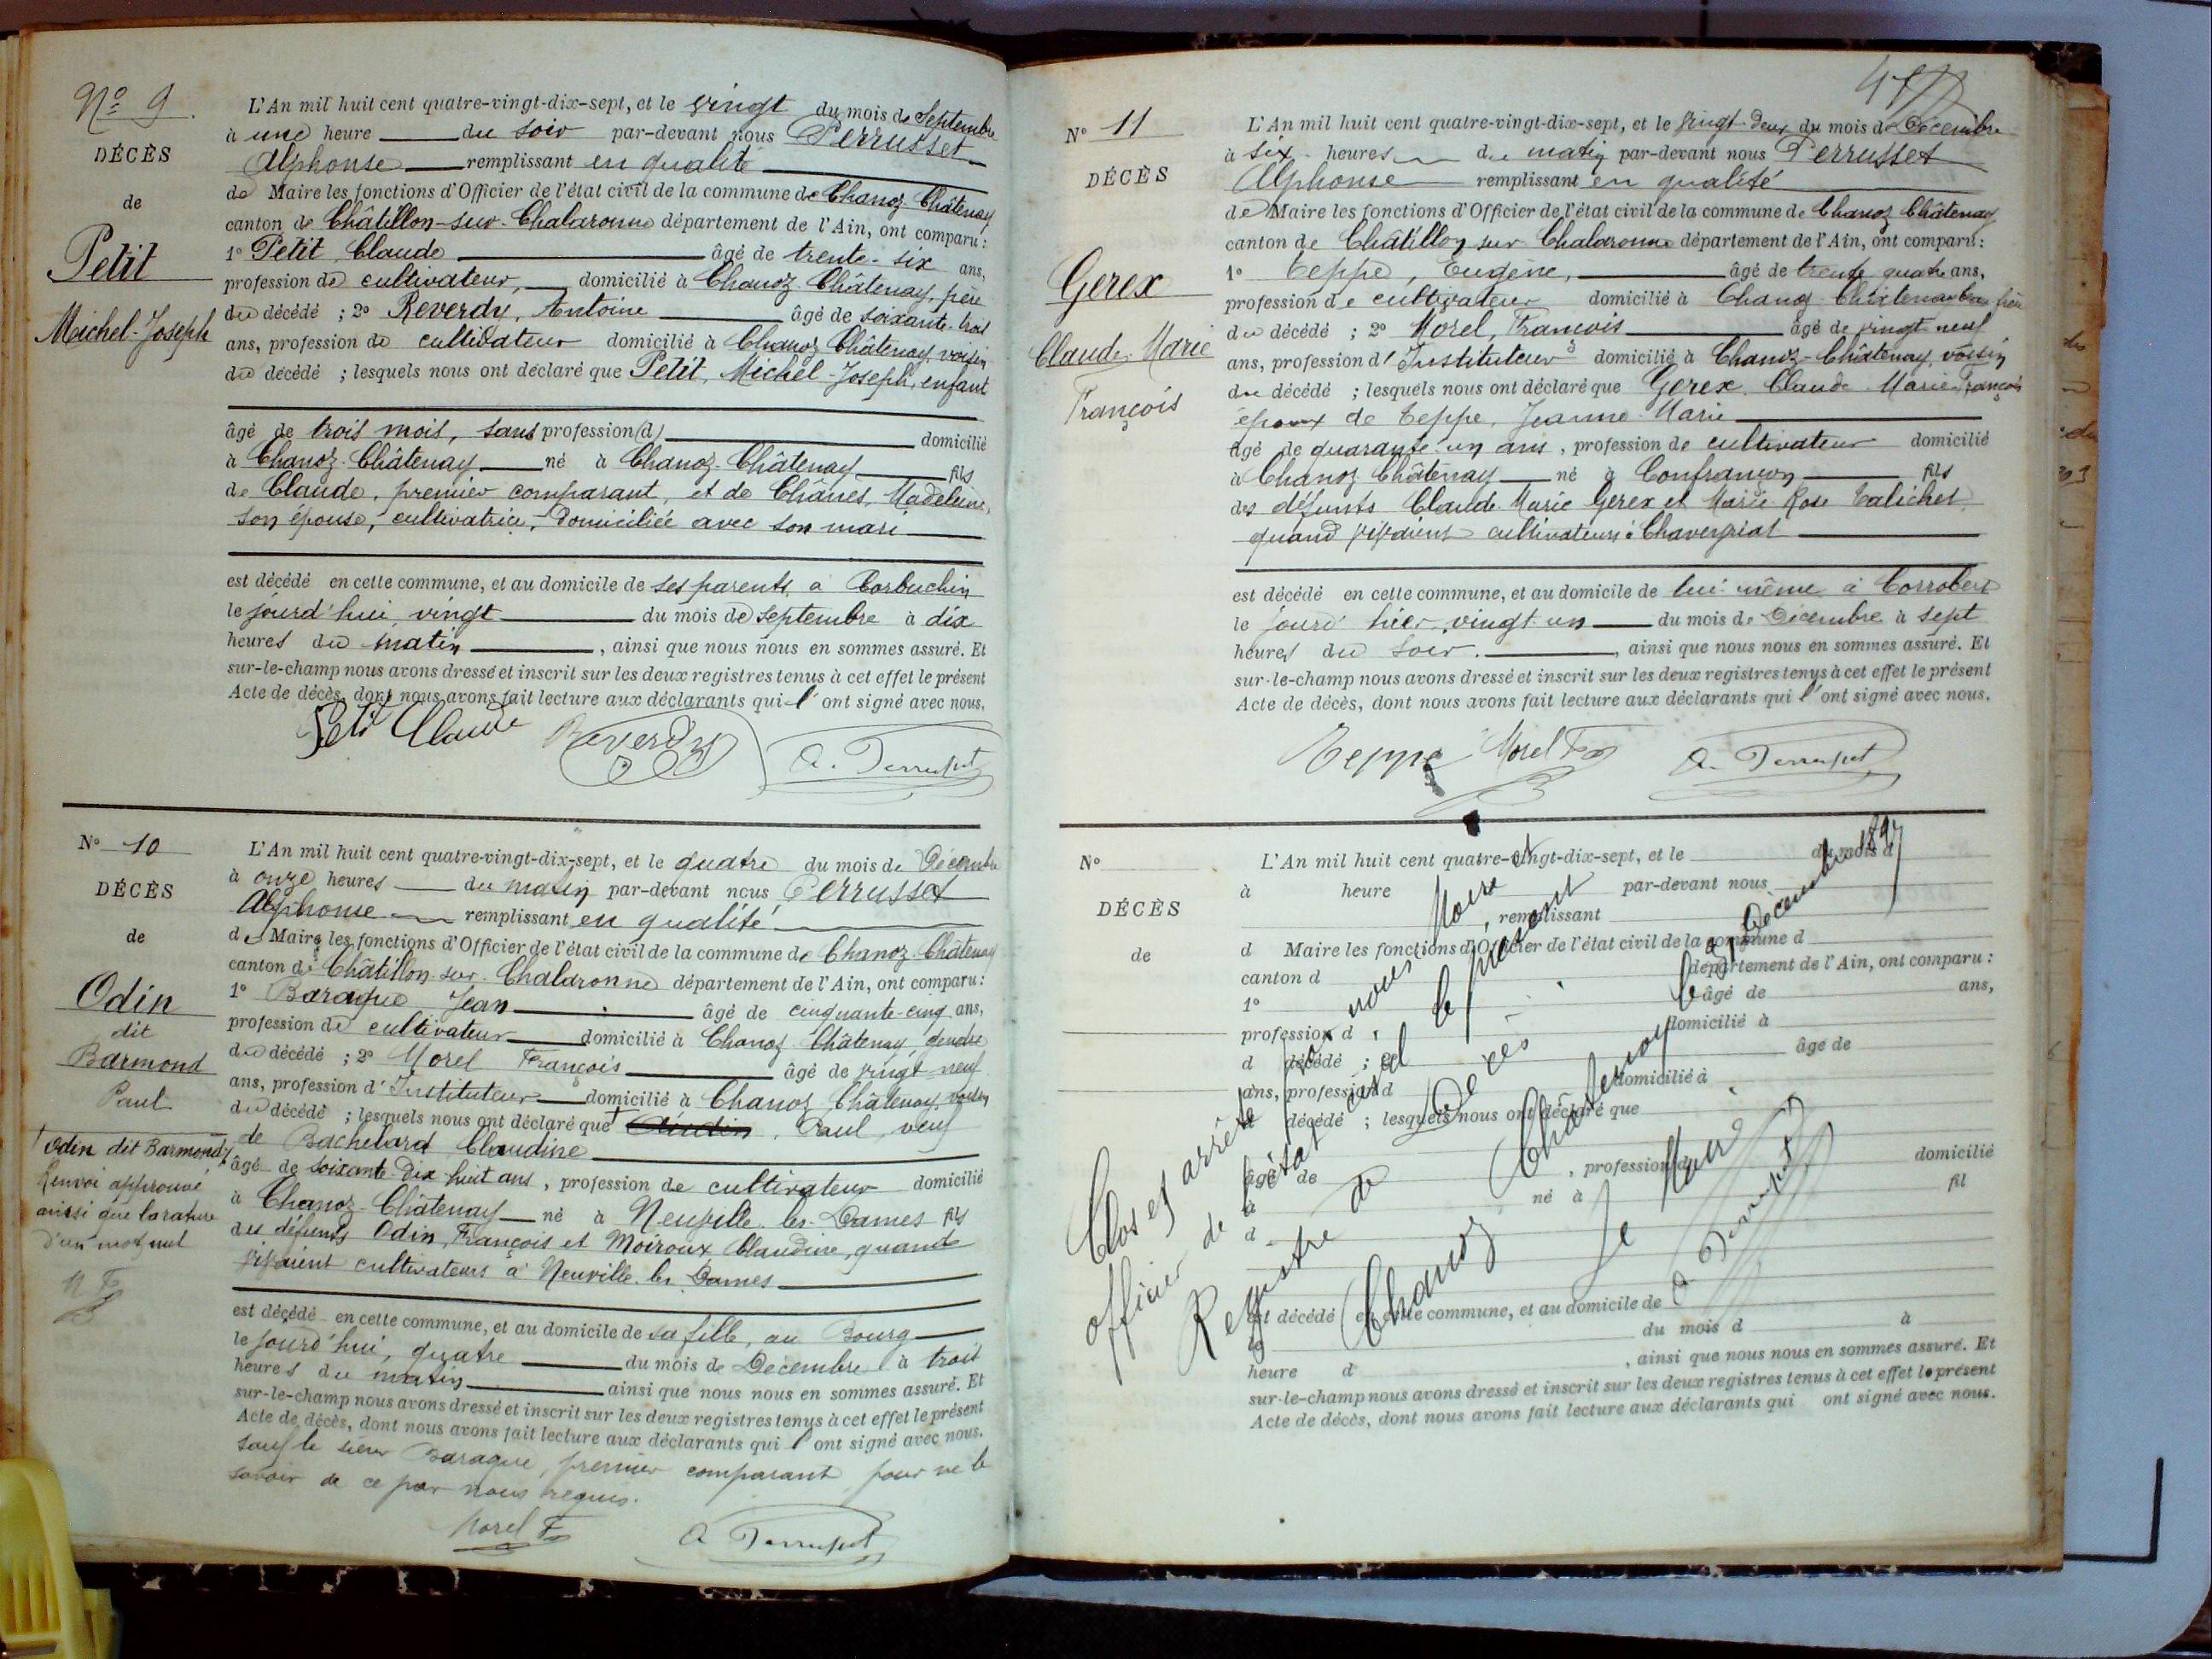 N° 9
DÉCÈS
de
Petit
Michel-Joseph
L'An mil huit cent quatre-vingt-dix-sept, et le vingt du mois de Septembre
à une heure du soir par-devant nous Perrusset
Alphonse remplissant en qualité
de Maire les fonctions d'Officier de l'état civil de la commune de Chanoz-Châtenay
canton de Châtillon-sur-Chalaronne département de l'Ain, ont comparu :
1° Petit Claude âgé de trente-six ans,
profession de cultivateur, domicilié à Chanoz Châtenay, père
du décédé ; 2° Reverdy, Antoine âgé de soixante-trois
ans, profession de cultivateur domicilié à Chanoz Châtenay, voisin
du décédé ; lesquels nous ont déclaré que Petit, Michel-Joseph, enfant
âgé de trois mois, sans profession (d) domicilié
à Chanoz-Châtenay né à Chanoz-Châtenay fils
de Claude, premier comparant, et de Chânes, Madeleine,
son épouse, cultivatrice, domiciliée avec son mari
est décédé en cette commune, et au domicile de ses parents, à Corbuchin
le jourd'hui, vingt du mois de septembre à dix
heures du matin, ainsi que nous nous en sommes assuré. Et
sur-le-champ nous avons dressé et inscrit sur les deux registres tenus à cet effet le présent
Acte de décès, dont nous avons fait lecture aux déclarants qui l'ont signé avec nous.
Petit Claude Reverdy A. Perrusset
N° 10
DÉCÈS
de
Odin
dit
Barmond
Paul
Odin dit Barmond
Renvoi approuvé
ainsi que la rature
d'un mot nul
L'An mil huit cent quatre-vingt-dix-sept, et le quatre du mois de Décembre
à onze heures du matin par-devant nous Perrusset
Alphonse remplissant en qualité
de Maire les fonctions d'Officier de l'état civil de la commune de Chanoz-Châtenay
canton de Châtillon-sur-Chalaronne département de l'Ain, ont comparu :
1° Baraque Jean âgé de cinquante-cinq ans,
profession de cultivateur domicilié à Chanoz Châtenay, gendre
du décédé ; 2° Morel François âgé de vingt-neuf
ans, profession d'Instituteur domicilié à Chanoz Châtenay, voisin
du décédé ; lesquels nous ont déclaré que Paul, veuf
de Bachelard Claudine
âgé de soixante dix huit ans, profession de cultivateur domicilié
à Chanoz-Châtenay né à Neuville-les-Dames fils
des défunts Odin, François et Moiroux Claudine, quand
vivaient cultivateurs à Neuville-les-Dames
est décédé en cette commune, et au domicile de sa fille, au Bourg
le jourd'hui, quatre du mois de Décembre à trois
heures du matin ainsi que nous nous en sommes assuré. Et
sur-le-champ nous avons dressé et inscrit sur les deux registres tenus à cet effet le présent
Acte de décès, dont nous avons fait lecture aux déclarants qui l'ont signé avec nous.
sauf le sieur Baraque, premier comparant pour ne le
savoir de ce par nous requis.
Morel F A. Perrusset
N° 11
DÉCÈS
de
Gerex
Claude-Marie
François
L'An mil huit cent quatre-vingt-dix-sept, et le vingt-deux du mois de Décembre
à six heures du matin par-devant nous Perrusset
Alphonse remplissant en qualité
de Maire les fonctions d'Officier de l'état civil de la commune de Chanoz Châtenay
canton de Châtillon sur Chalaronne département de l'Ain, ont comparu :
1° Teppe, Eugène, âgé de trente quatre ans,
profession de cultivateur domicilié à Chanoz-Châtenay, frère
du décédé ; 2° Morel, François âgé de vingt-neuf
ans, profession d'Instituteur domicilié à Chanoz-Châtenay, voisin
du décédé ; lesquels nous ont déclaré que Gerex, Claude-Marie-François
époux de Teppe, Jeanne-Marie
âgé de quarante-un ans, profession de cultivateur domicilié
à Chanoz-Châtenay né à Confrançon fils
des défunts Claude-Marie Gerex et Marie Rose
quand vivaient cultivateurs à Chaveyriat
est décédé en cette commune, et au domicile de lui-même à Corrobert
le jourd'hier, vingt-un du mois de Décembre à sept
heures du soir, ainsi que nous nous en sommes assuré. Et
sur-le-champ nous avons dressé et inscrit sur les deux registres tenus à cet effet le présent
Acte de décès, dont nous avons fait lecture aux déclarants qui l'ont signé avec nous.
Teppe Morel F A. Perrusset
N°
DÉCÈS
de
L'An mil huit cent quatre-vingt-dix-sept, et le du mois d
à heure par-devant nous
remplissant
d Maire les fonctions d'Officier de l'état civil de la commune d
canton d département de l'Ain, ont comparu :
1° âgé de ans,
profession d domicilié à
d décédé ; 2° âgé de
ans, profession d domicilié à
d décédé ; lesquels nous ont déclaré que
âgé de , profession d domicilié
à né à fil
d
est décédé en cette commune, et au domicile de
le du mois d à
heure d , ainsi que nous nous en sommes assuré. Et
sur-le-champ nous avons dressé et inscrit sur les deux registres tenus à cet effet le présent
Acte de décès, dont nous avons fait lecture aux déclarants qui ont signé avec nous.
Clos et arrêté par nous, Maire et
officier de l'état civil le présent
Registre de Décès
Chanoz Châtenay le 31 Décembre 1897
Le Maire
A. Perrusset